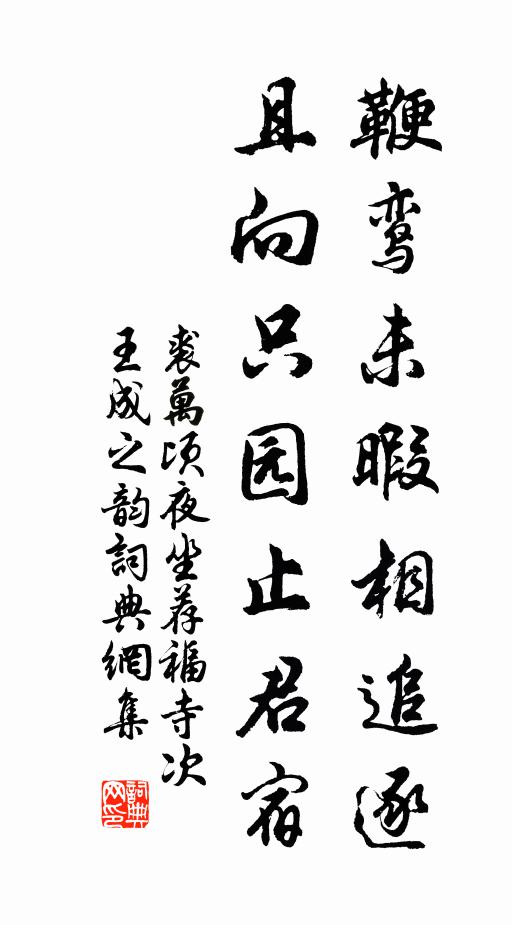 鞭鸾未暇相追逐
且向只园止君宿
裘萬顷夜坐荐福寺次
王成之韵詞典網集
詞典网印